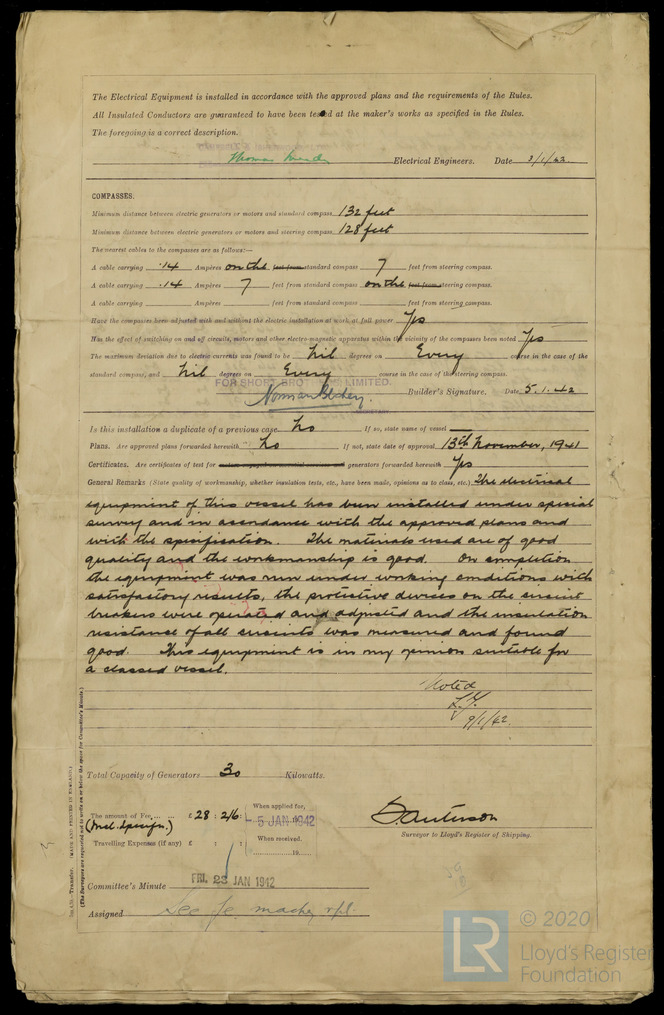 The Electrical Equipment is installed in accordance with the approved plans and the requirements of the Rules.
All Insulated Conductors are guaranteed to have been tested at the maker's works as specified in the Rules.
The foregoing is a correct description.
Thomas Electrical Engineers. Date 3/1/42
COMPASSES.
Minimum distance between electric generators or motors and standard compass 132 feet
Minimum distance between electric generators or motors and steering compass 128 feet
The nearest cables to the compasses are as follows:—
A cable carrying .14 Ampères on the feet from standard compass 7 feet from steering compass.
A cable carrying .14 Ampères 7 feet from standard compass on the feet from steering compass.
A cable carrying Ampères feet from standard compass feet from steering compass.
Have the compasses been adjusted with and without the electric installation at work at full power Yes
Has the effect of switching on and off circuits, motors and other electro-magnetic apparatus within the vicinity of the compasses been noted Yes
The maximum deviation due to electric currents was found to be Nil degrees on Every course in the case of the
standard compass, and Nil degrees on Every course in the case of the steering compass.
FOR SHORT BROTHERS LIMITED.
Norman Builder's Signature. Date 5.1.42
Is this installation a duplicate of a previous case No If so, state name of vessel
Plans. Are approved plans forwarded herewith No If not, state date of approval 13th November, 1941
Certificates. Are certificates of test for generators forwarded herewith Yes
General Remarks (State quality of workmanship, whether insulation tests, etc., have been made, opinions as to class, etc.) The electrical
equipment of this vessel has been installed under special
survey and in accordance with the approved plans and
with the specification. The materials used are of good
quality and the workmanship is good. On completion
the equipment was run under working conditions with
satisfactory results, the protective devices on the circuit
breakers were operated and adjusted and the insulation
resistance of all circuits was measured and found
good. This equipment is in my opinion suitable for
a classed vessel.
Noted
9/1/42
Total Capacity of Generators 30 Kilowatts.
The amount of Fee £ 28 : 2/6 : When applied for,
- 5 JAN 1942
(Incl. Specifn.)
When received.
Travelling Expenses (if any) £ : : 19
Surveyor to Lloyd's Register of Shipping.
Committee's Minute FRI. 23 JAN 1942
Assigned See machy rpt.
Transfer. (MADE AND PRINTED IN ENGLAND.)
(The Surveyors are requested not to write on or below the space for Committee's Minute.)
LR © 2020
Lloyd's Register
Foundation